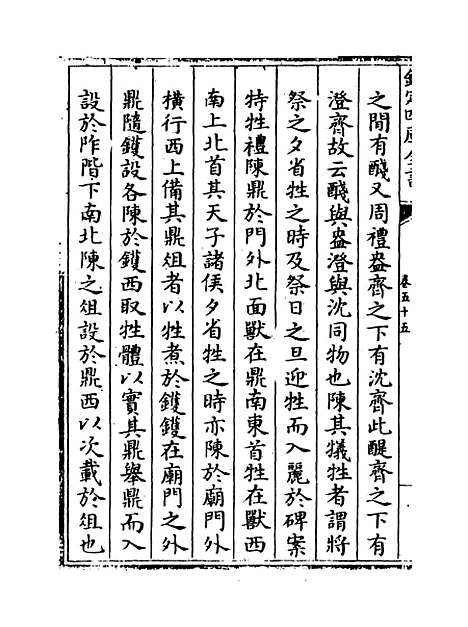 欽定四庫全書
卷五十五
之間有醆又周禮盎齊之下有沈齊此醍齊之下有
澄齊故云醆與盎澄與沈同物也陳其犧牲者謂將
祭之夕省牲之時及祭日之旦迎牲而入麗於碑案
特牲禮陳鼎於門外北面獸在鼎南東首牲在獸西
南上北首其天子諸侯夕省牲之時亦陳於廟門外
橫行西上備其鼎俎者以牲煮於鑊鑊在廟門之外
鼎隨鑊設各陳於鑊西取牲體以實其鼎舉鼎而入
設於阼階下南北陳之俎設於鼎西以次載於俎也